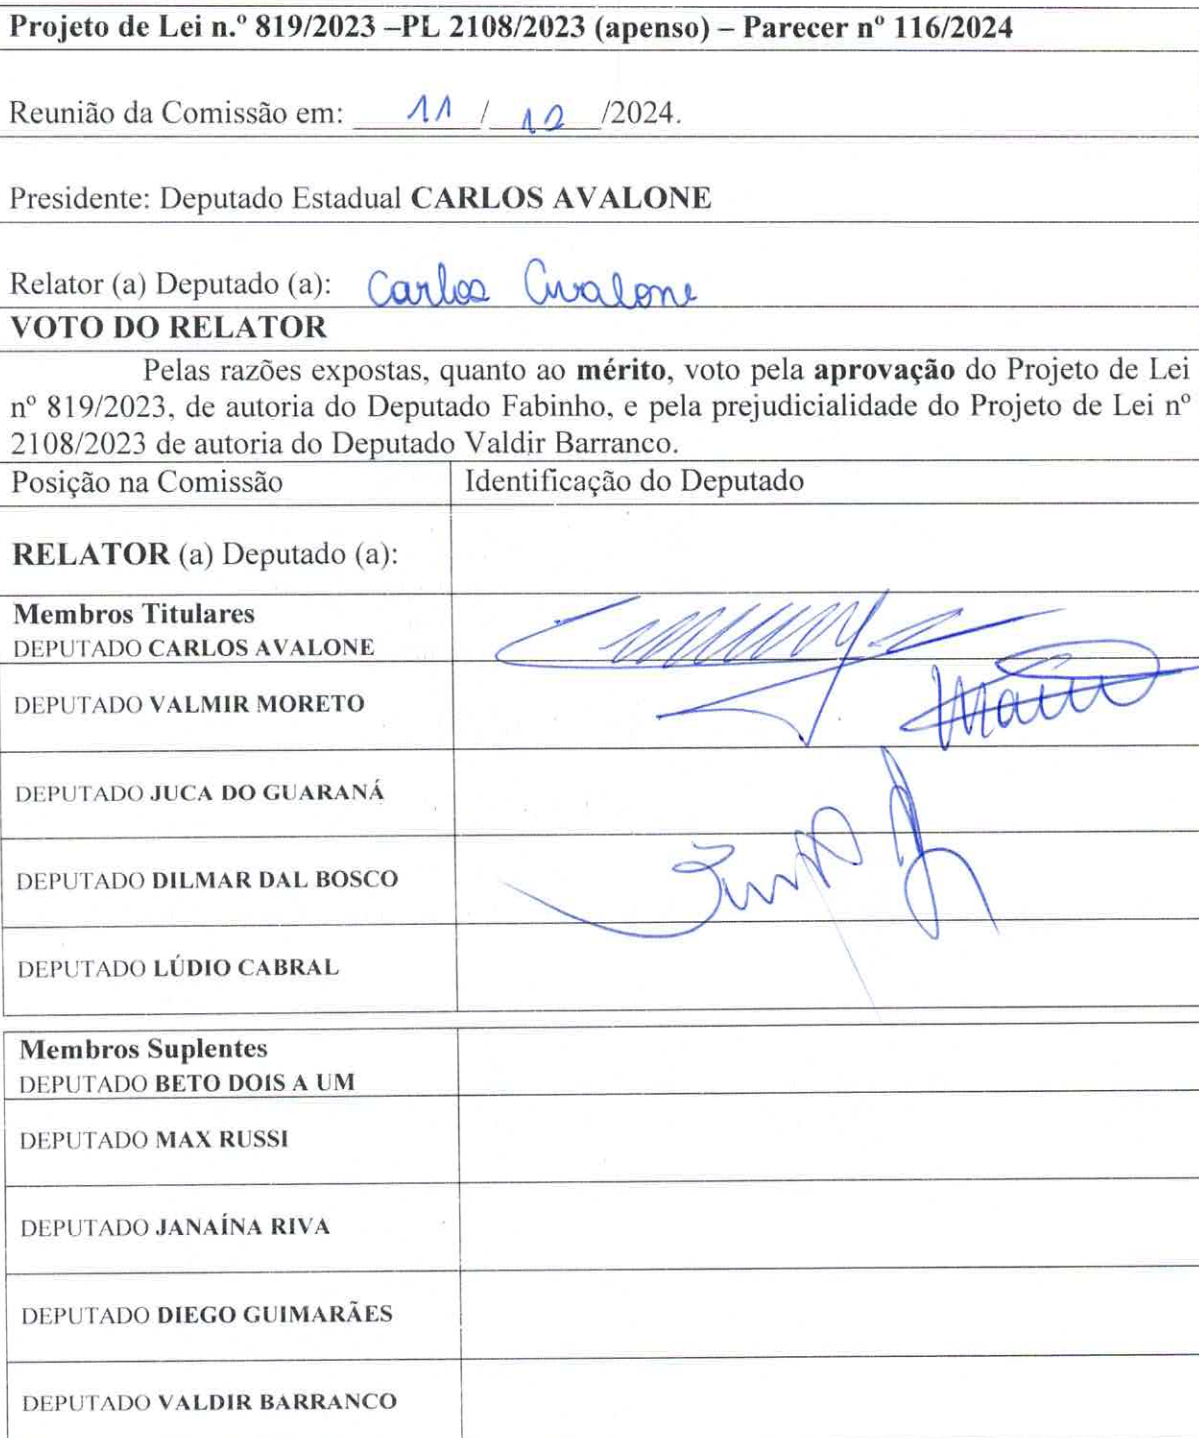 Projeto de Lei n.º 819/2023 –PL 2108/2023 (apenso) – Parecer nº 116/2024
Reunião da Comissão em: 11 / 12 /2024.
Presidente: Deputado Estadual CARLOS AVALONE
Relator (a) Deputado (a): Carlos Avalone
VOTO DO RELATOR
Pelas razões expostas, quanto ao mérito, voto pela aprovação do Projeto de Lei
nº 819/2023, de autoria do Deputado Fabinho, e pela prejudicialidade do Projeto de Lei nº
2108/2023 de autoria do Deputado Valdir Barranco.
Posição na Comissão Identificação do Deputado
RELATOR (a) Deputado (a):
Membros Titulares
DEPUTADO CARLOS AVALONE
DEPUTADO VALMIR MORETO
DEPUTADO JUCA DO GUARANÁ
DEPUTADO DILMAR DAL BOSCO
DEPUTADO LÚDIO CABRAL
Membros Suplentes
DEPUTADO BETO DOIS A UM
DEPUTADO MAX RUSSI
DEPUTADO JANAÍNA RIVA
DEPUTADO DIEGO GUIMARÃES
DEPUTADO VALDIR BARRANCO